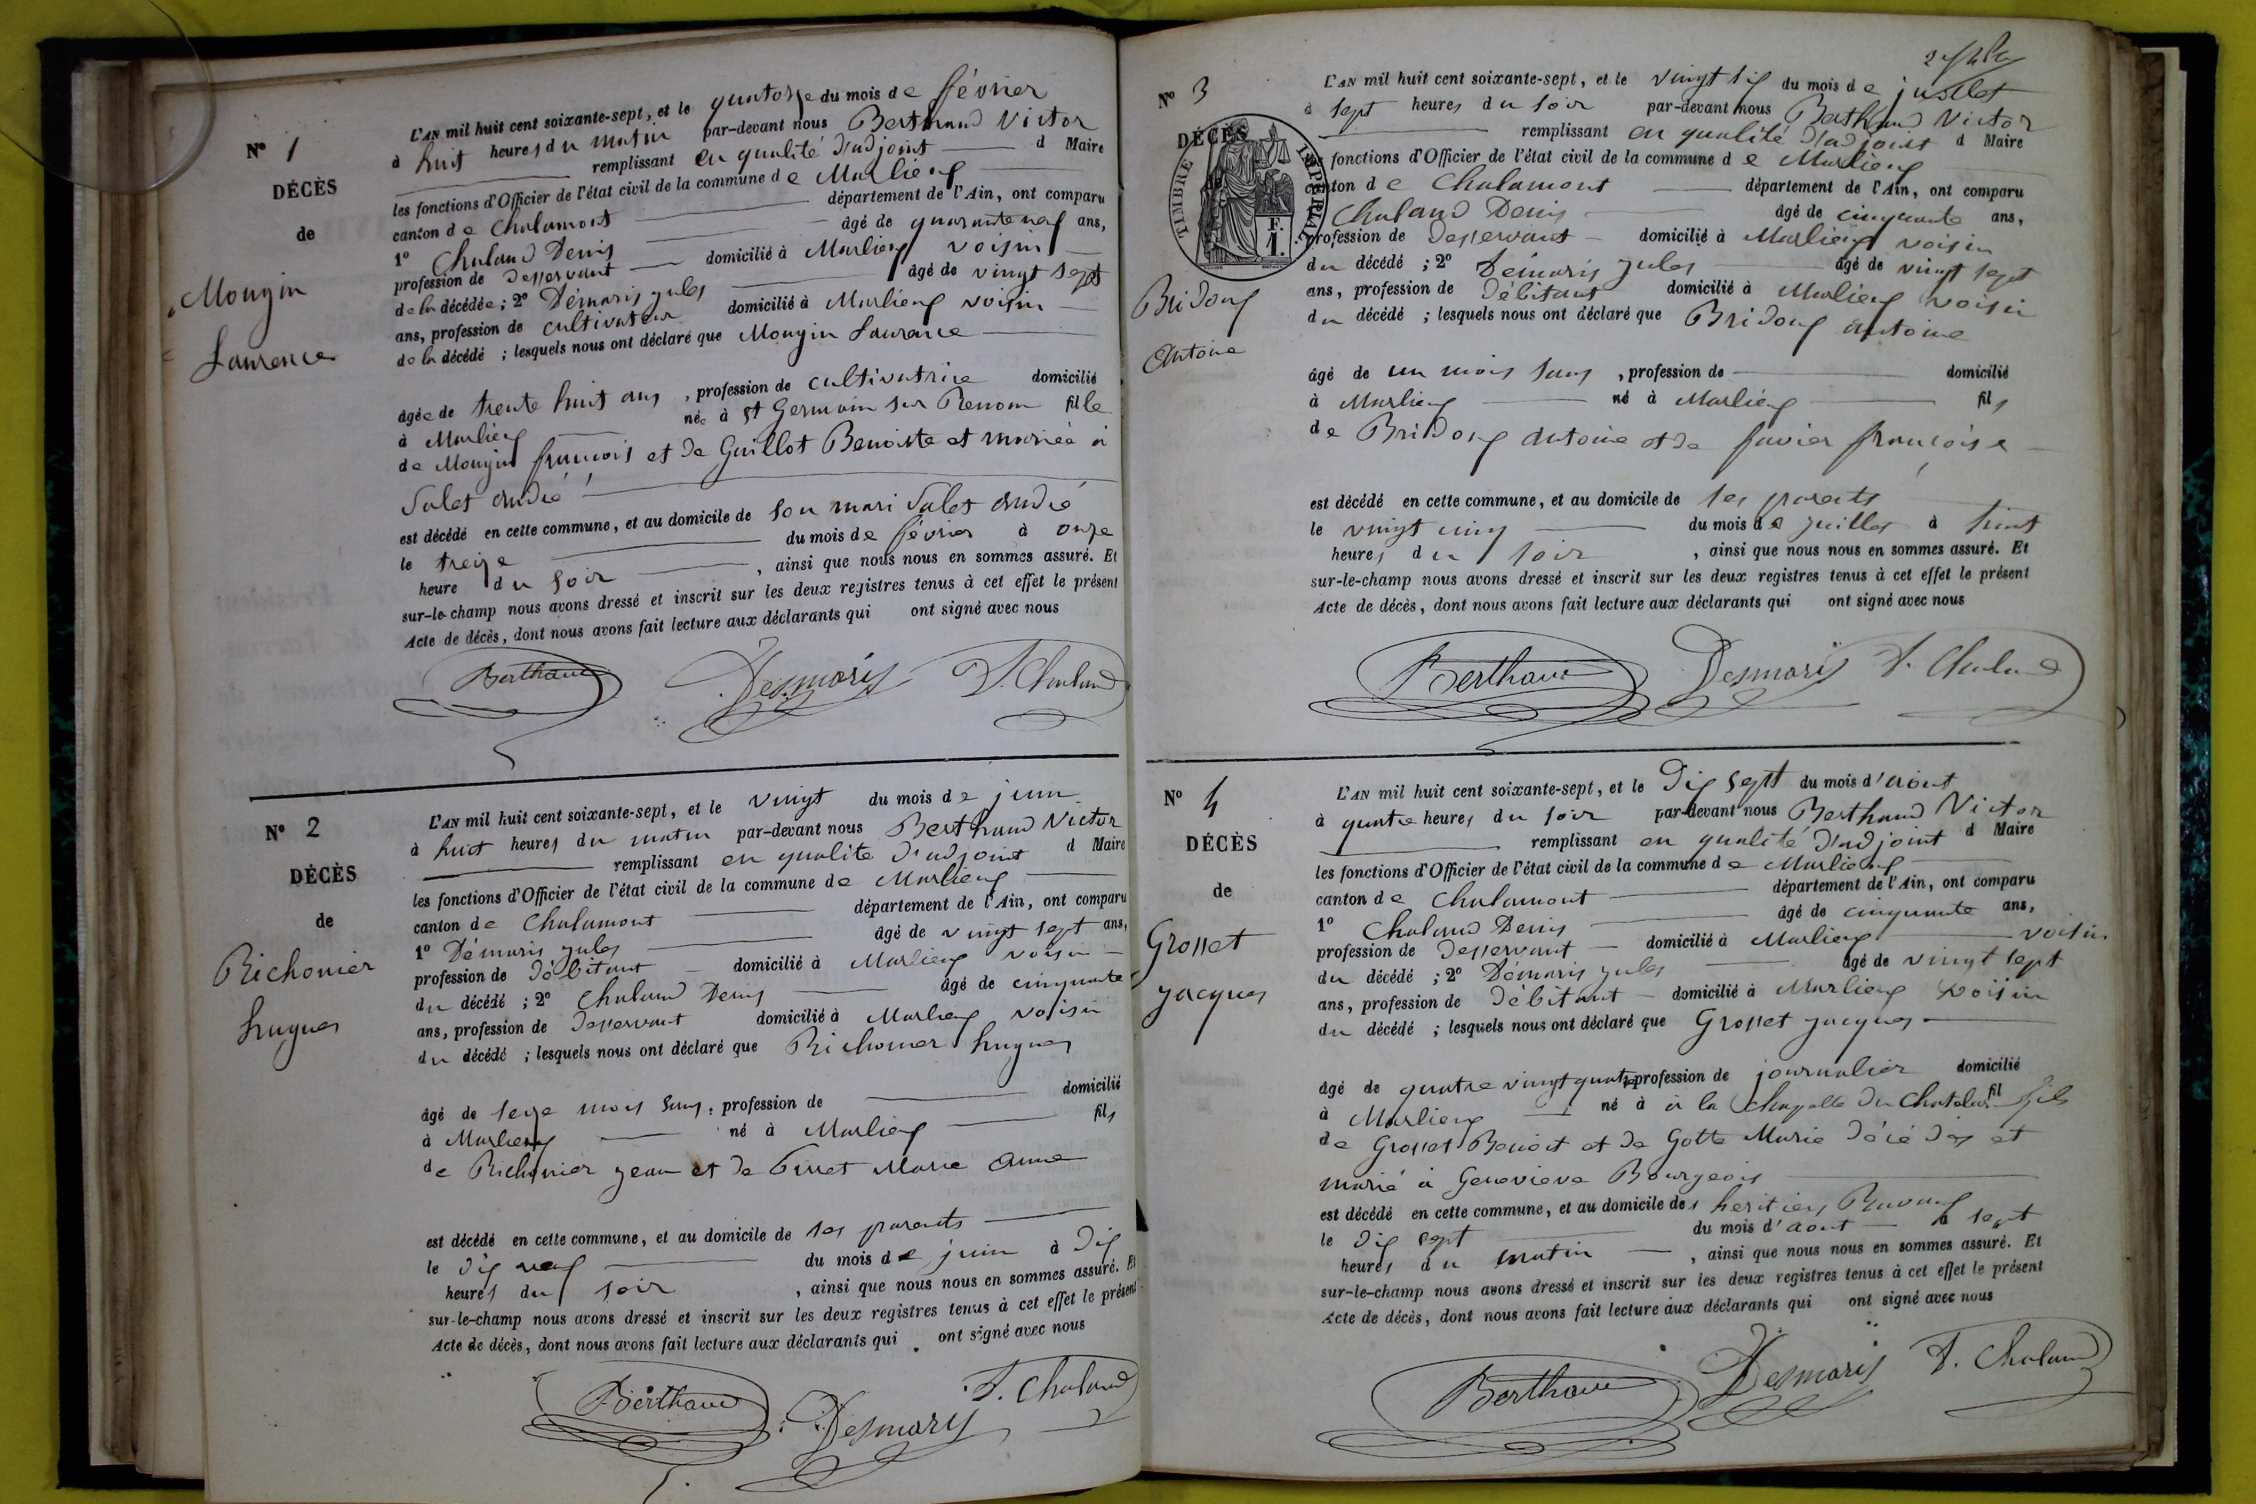 N° 1
DÉCÈS
de
Mougin
Laurence
L'AN mil huit cent soixante-sept, et le quatorze du mois de février
à huit heures du matin par-devant nous Berthaud Victor
remplissant en qualité d'adjoint d Maire
les fonctions d'Officier de l'état civil de la commune de Marlieux
canton de Chalamont département de l'Ain, ont comparu
1° Chaland Denis âgé de quarante neuf ans,
profession de desservant domicilié à Marlieux voisin
de la décédée ; 2° Démaris jules âgé de vingt sept
ans, profession de cultivateur domicilié à Marlieux voisin
de la décédé ; lesquels nous ont déclaré que Mougin Laurence
âgée de trente huit ans , profession de cultivatrice domicilié
à Marlieux née à St Germain sur Renom fille
de Mougin francois et de Guillot Benoite et mariée à
Salet André
est décédé en cette commune, et au domicile de son mari Salet André
le treize du mois de février à onze
heure du soir , ainsi que nous nous en sommes assuré. Et
sur-le-champ nous avons dressé et inscrit sur les deux registres tenus à cet effet le présent
Acte de décès, dont nous avons fait lecture aux déclarants qui ont signé avec nous
Berthaud Desmaris D. Chaland
N° 2
DÉCÈS
de
Richonier
hugues
L'AN mil huit cent soixante-sept, et le vingt du mois de juin
à huit heures du matin par-devant nous Berthaud Victor
remplissant en qualité d'adjoint d Maire
les fonctions d'Officier de l'état civil de la commune de Marlieux
canton de Chalamont département de l'Ain, ont comparu
1° Démaris jules âgé de vingt sept ans,
profession de débitant domicilié à Marlieux voisin
du décédé ; 2° Chaland Denis âgé de cinquante
ans, profession de desservant domicilié à Marlieux voisin
du décédé ; lesquels nous ont déclaré que Richonier hugues
âgé de seize mois sans , profession de domicilié
à Marlieux né à Marlieux fils
de Richonier jean et de Marie Anne
est décédé en cette commune, et au domicile de ses parents
le dix neuf du mois de juin à dix
heures du soir , ainsi que nous nous en sommes assuré. Et
sur-le-champ nous avons dressé et inscrit sur les deux registres tenus à cet effet le présent
Acte de décès, dont nous avons fait lecture aux déclarants qui ont signé avec nous
Berthaud Desmaris D. Chaland
N° 3
DÉCÈS
TIMBRE IMPERIAL
1 F.
Bridoux
Antoine
L'AN mil huit cent soixante-sept, et le vingt six du mois de juillet
à sept heures du soir par-devant nous Berthaud Victor
remplissant en qualité d'adjoint d Maire
fonctions d'Officier de l'état civil de la commune de Marlieux
canton de Chalamont département de l'Ain, ont comparu
Chaland Denis âgé de cinquante ans,
profession de desservant domicilié à Marlieux voisin
du décédé ; 2° Démaris jules âgé de vingt sept
ans, profession de débitant domicilié à Marlieux voisin
du décédé ; lesquels nous ont déclaré que Bridoux antoine
âgé de un mois sans , profession de domicilié
à Marlieux né à Marlieux fils
de Bridoux antoine et de favier françoise
est décédé en cette commune, et au domicile de ses parents
le vingt cinq du mois de juillet à huit
heures du soir , ainsi que nous nous en sommes assuré. Et
sur-le-champ nous avons dressé et inscrit sur les deux registres tenus à cet effet le présent
Acte de décès, dont nous avons fait lecture aux déclarants qui ont signé avec nous
Berthaud Desmaris D. Chaland
N° 4
DÉCÈS
de
Grosset
jacques
L'AN mil huit cent soixante-sept, et le dix sept du mois d'aout
à quatre heures du soir par-devant nous Berthaud Victor
remplissant en qualité d'adjoint d Maire
les fonctions d'Officier de l'état civil de la commune de Marlieux
canton de Chalamont département de l'Ain, ont comparu
1° Chaland Denis âgé de cinquante ans,
profession de desservant domicilié à Marlieux voisin
du décédé ; 2° Démaris jules âgé de vingt sept
ans, profession de débitant domicilié à Marlieux voisin
du décédé ; lesquels nous ont déclaré que Grosset jacques
âgé de quatre vingt quatre profession de journalier domicilié
à Marlieux né à à la Chapelle du Chatelard fil fils
de Grosset Benoit et de Gotte Marie décédés et
marié à Genevieve Bourgeois
est décédé en cette commune, et au domicile des heritiers
le dix sept du mois d'aout à sept
heures du matin , ainsi que nous nous en sommes assuré. Et
sur-le-champ nous avons dressé et inscrit sur les deux registres tenus à cet effet le présent
Acte de décès, dont nous avons fait lecture aux déclarants qui ont signé avec nous
Berthaud Desmaris D. Chaland